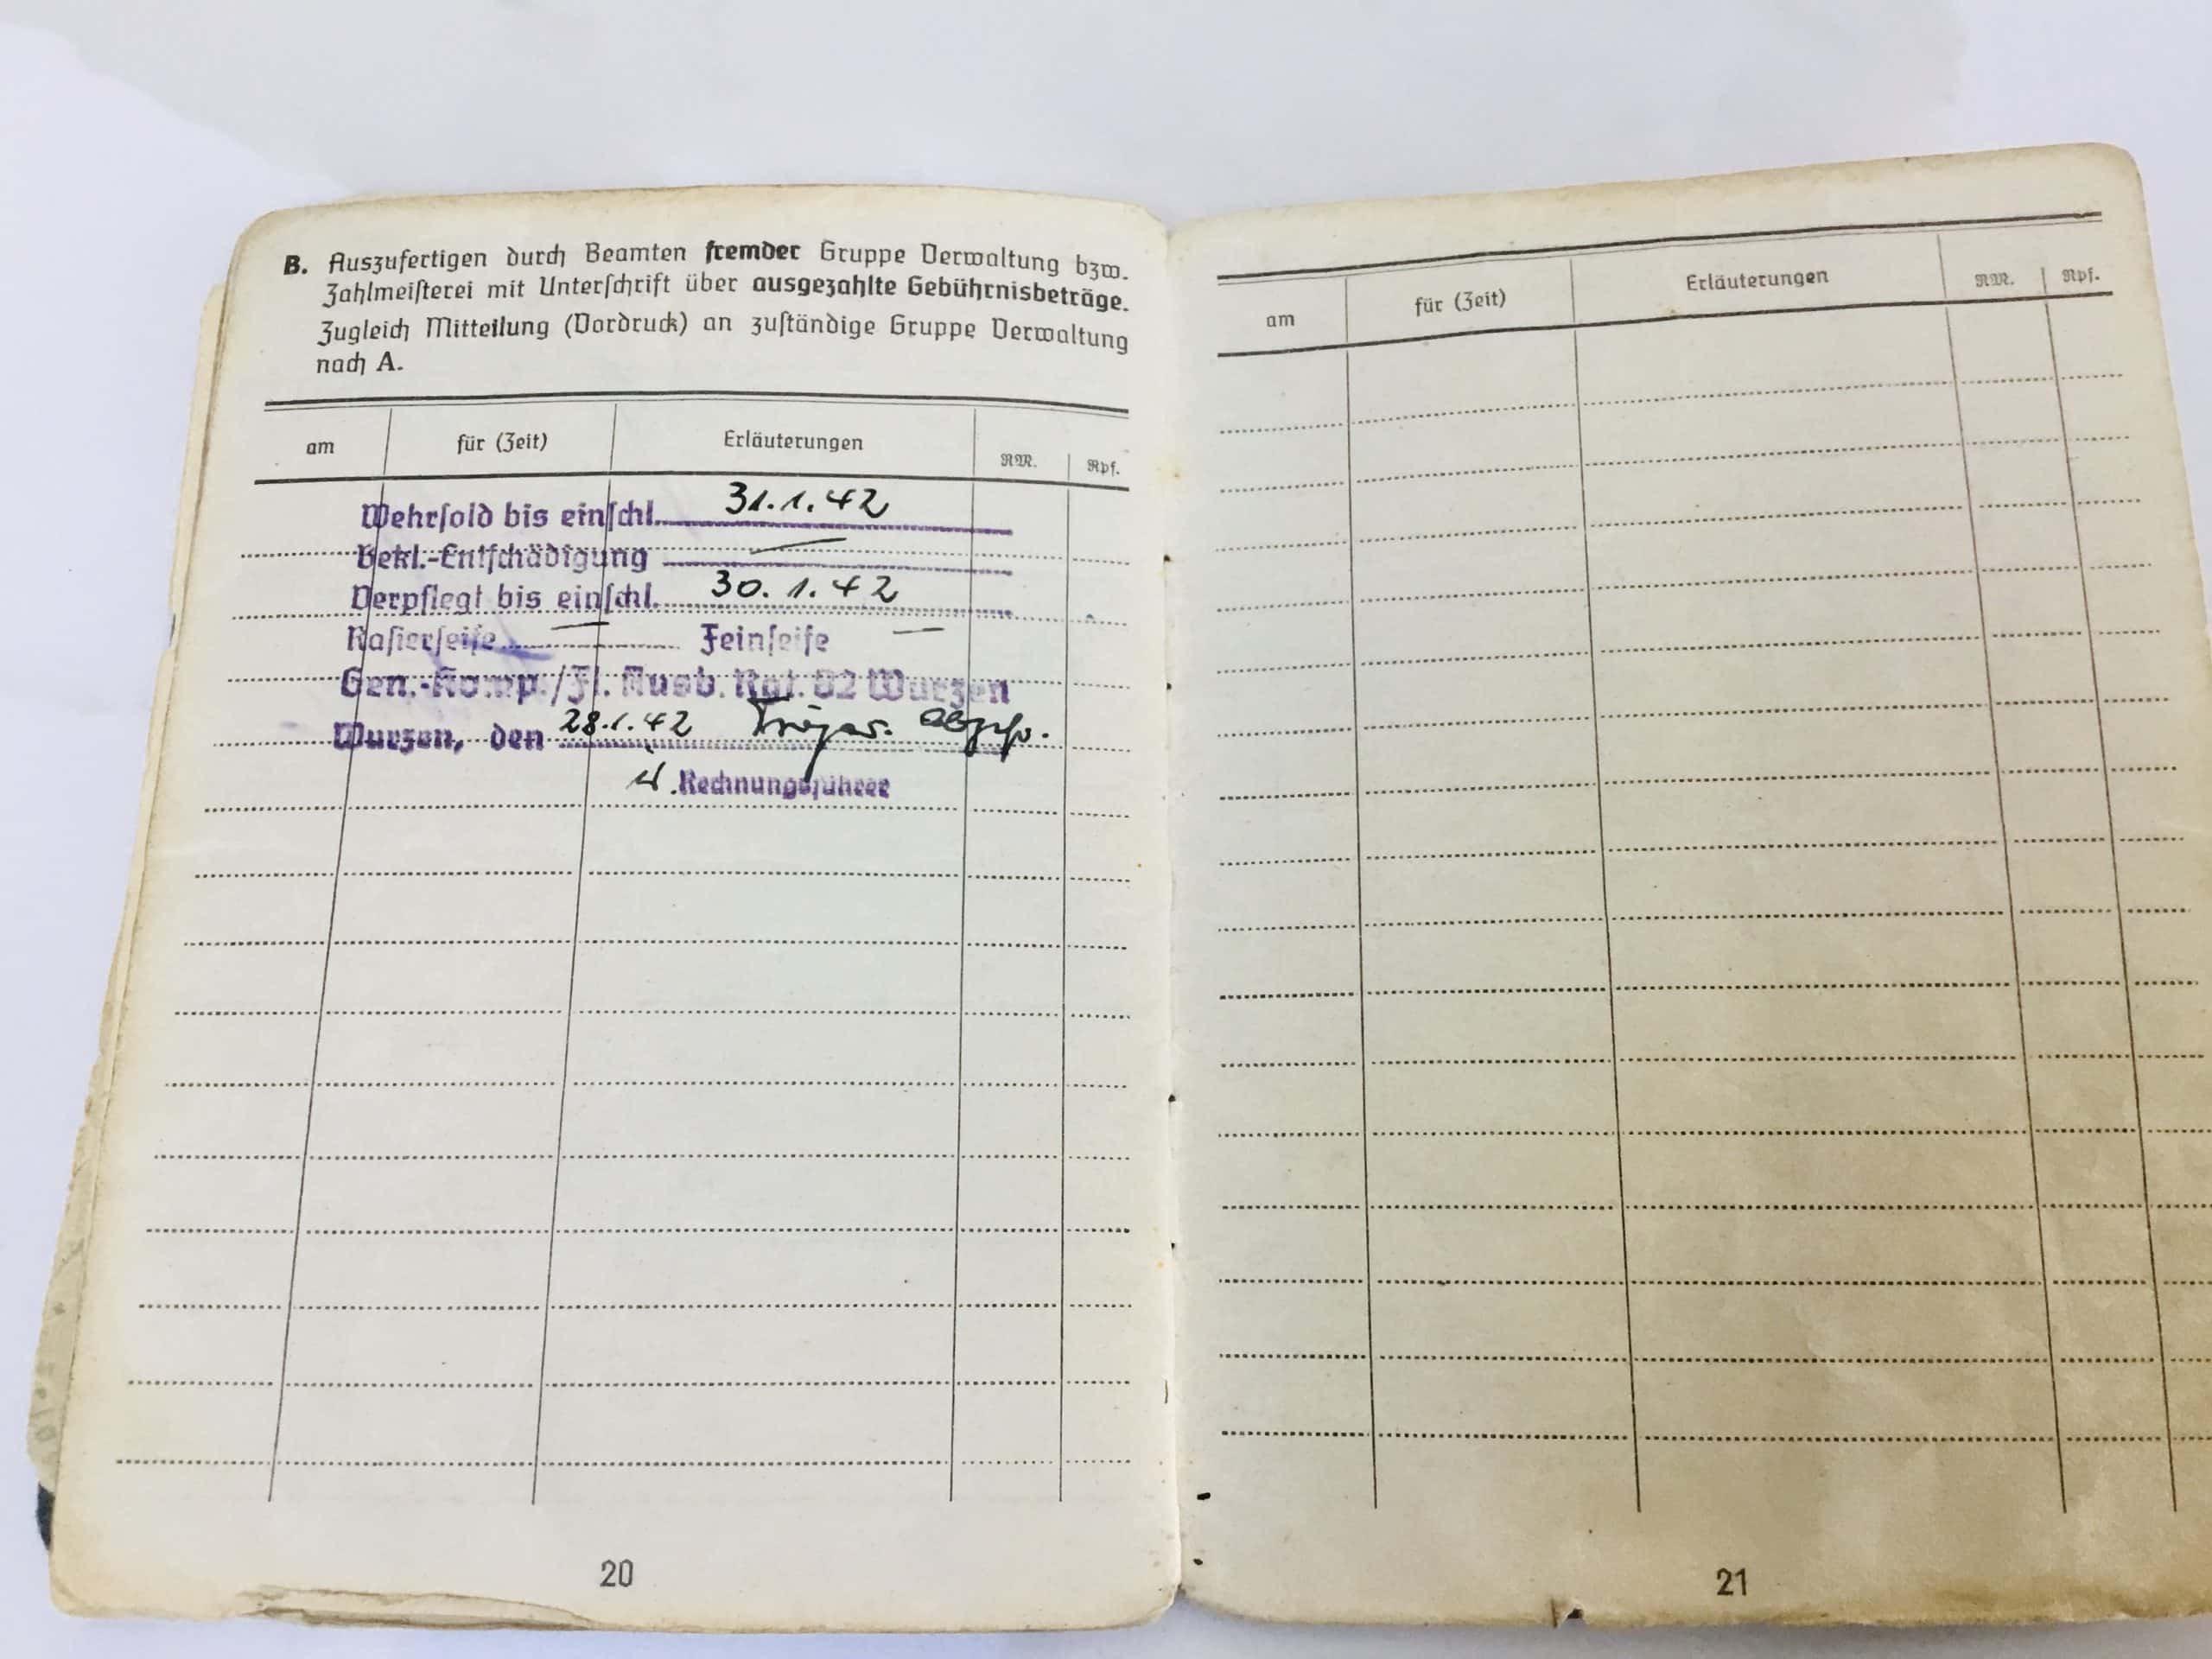 B. Auszufertigen durch Beamten fremder Gruppe Verwaltung bzw.
Zahlmeisterei mit Unterschrift über ausgezahlte Gebührnisbeträge.
Zugleich Mitteilung (Vordruck) an zuständige Gruppe Verwaltung
nach A.
am für (Zeit) Erläuterungen RM. Rpf.
Wehrsold bis einschl. 31.1.42
Bekl.-Entschädigung —
Verpflegt bis einschl. 30.1.42
Rasierseife — Feinseife —
Gen.-Komp./Fl. Ausb. Rgt. 82 Wurzen
Wurzen, den 28.1.42
Rechnungsführer
20
am für (Zeit) Erläuterungen RM. Rpf.
21